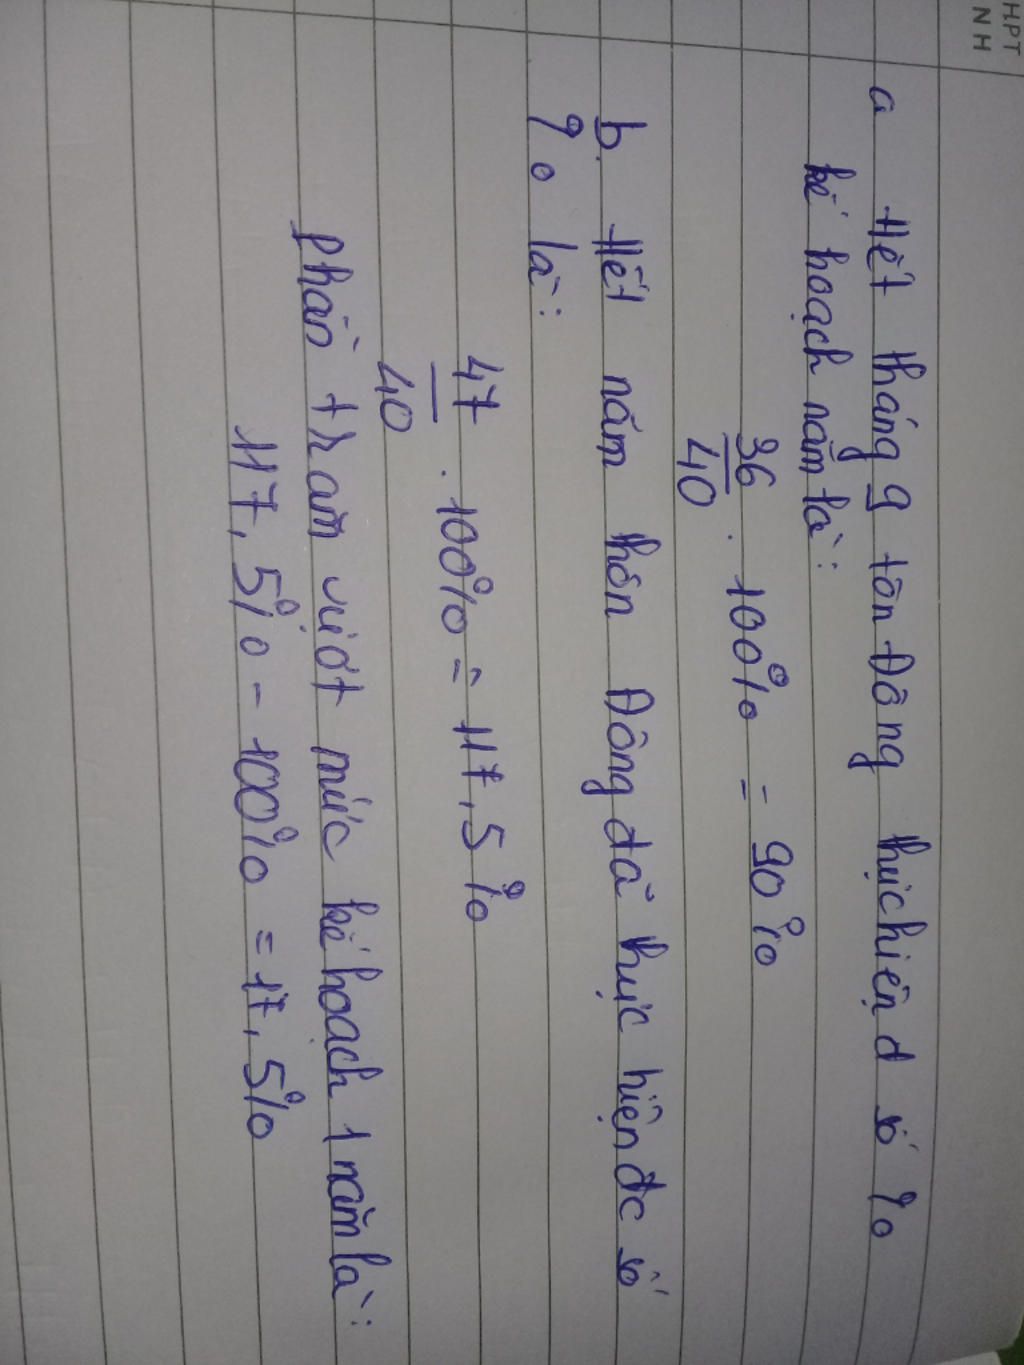 HPT
NH
a Hết tháng 9 tôn Đông thực hiện đ số %
kế hoạch năm là:
36/40 . 100% = 90%
b. Hết năm thôn Đông đã thực hiện đc số
% là:
47/40 . 100% = 117,5%
phần trăm vượt mức kế hoạch 1 năm là:
117,5% - 100% = 17,5%